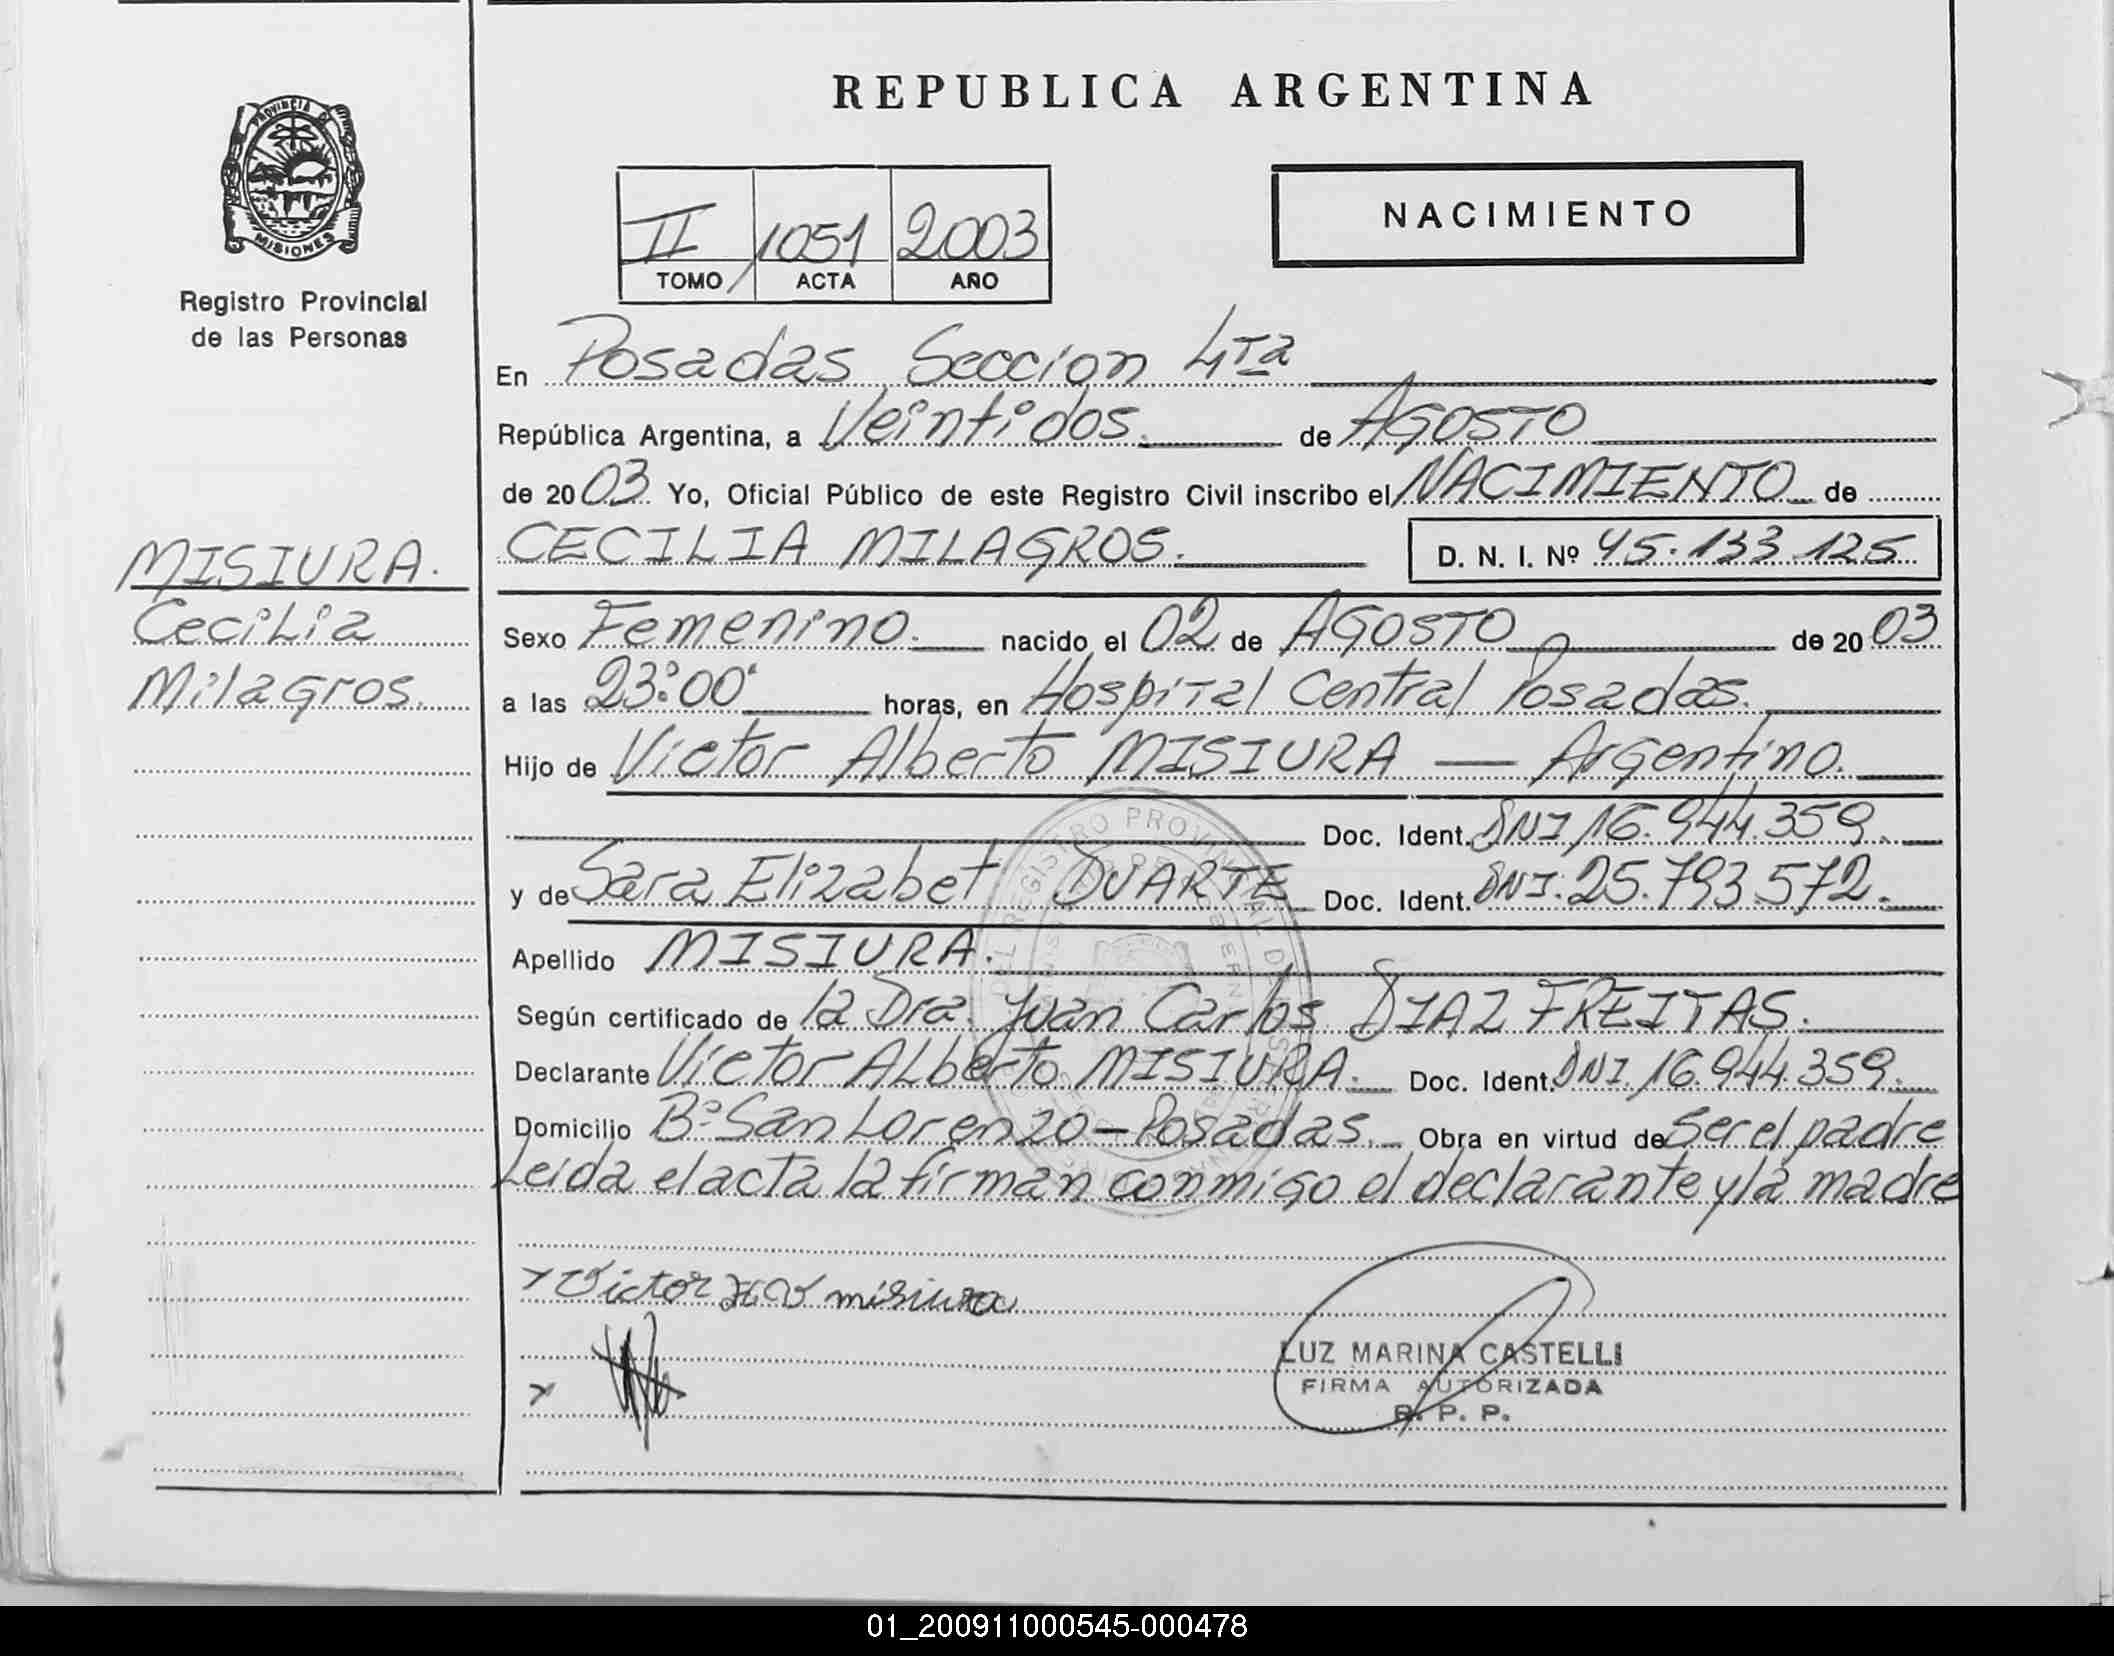 REPUBLICA ARGENTINA
PROVINCIA DE
MISIONES
Registro Provincial
de las Personas
II 1051 2003
TOMO ACTA AÑO
NACIMIENTO
En Posadas Seccion 4ta
República Argentina, a Veintidos. de AGOSTO
de 2003 Yo, Oficial Público de este Registro Civil inscribo el NACIMIENTO de
CECILIA MILAGROS. D. N. I. Nº 45.133.125
MISIURA.
Cecilia
Milagros.
Sexo Femenino. nacido el 02 de AGOSTO de 2003
a las 23:00 horas, en Hospital Central Posadas.
Hijo de Victor Alberto MISIURA — Argentino.
Doc. Ident. DNI 16.944.359.
y de Sara Elizabet DUARTE Doc. Ident. DNI. 25.793.572.
Apellido MISIURA.
Según certificado de la Dra. Juan Carlos DIAZ FREITAS.
Declarante Victor ALberto MISIURA. Doc. Ident. DNI. 16.944.359.
Domicilio Bº San Lorenzo - Posadas. Obra en virtud de Ser el padre
Leida el acta la firman conmigo el declarante y la madre
Victor misiura
LUZ MARINA CASTELLI
FIRMA AUTORIZADA
R. P. P.
01_200911000545-000478